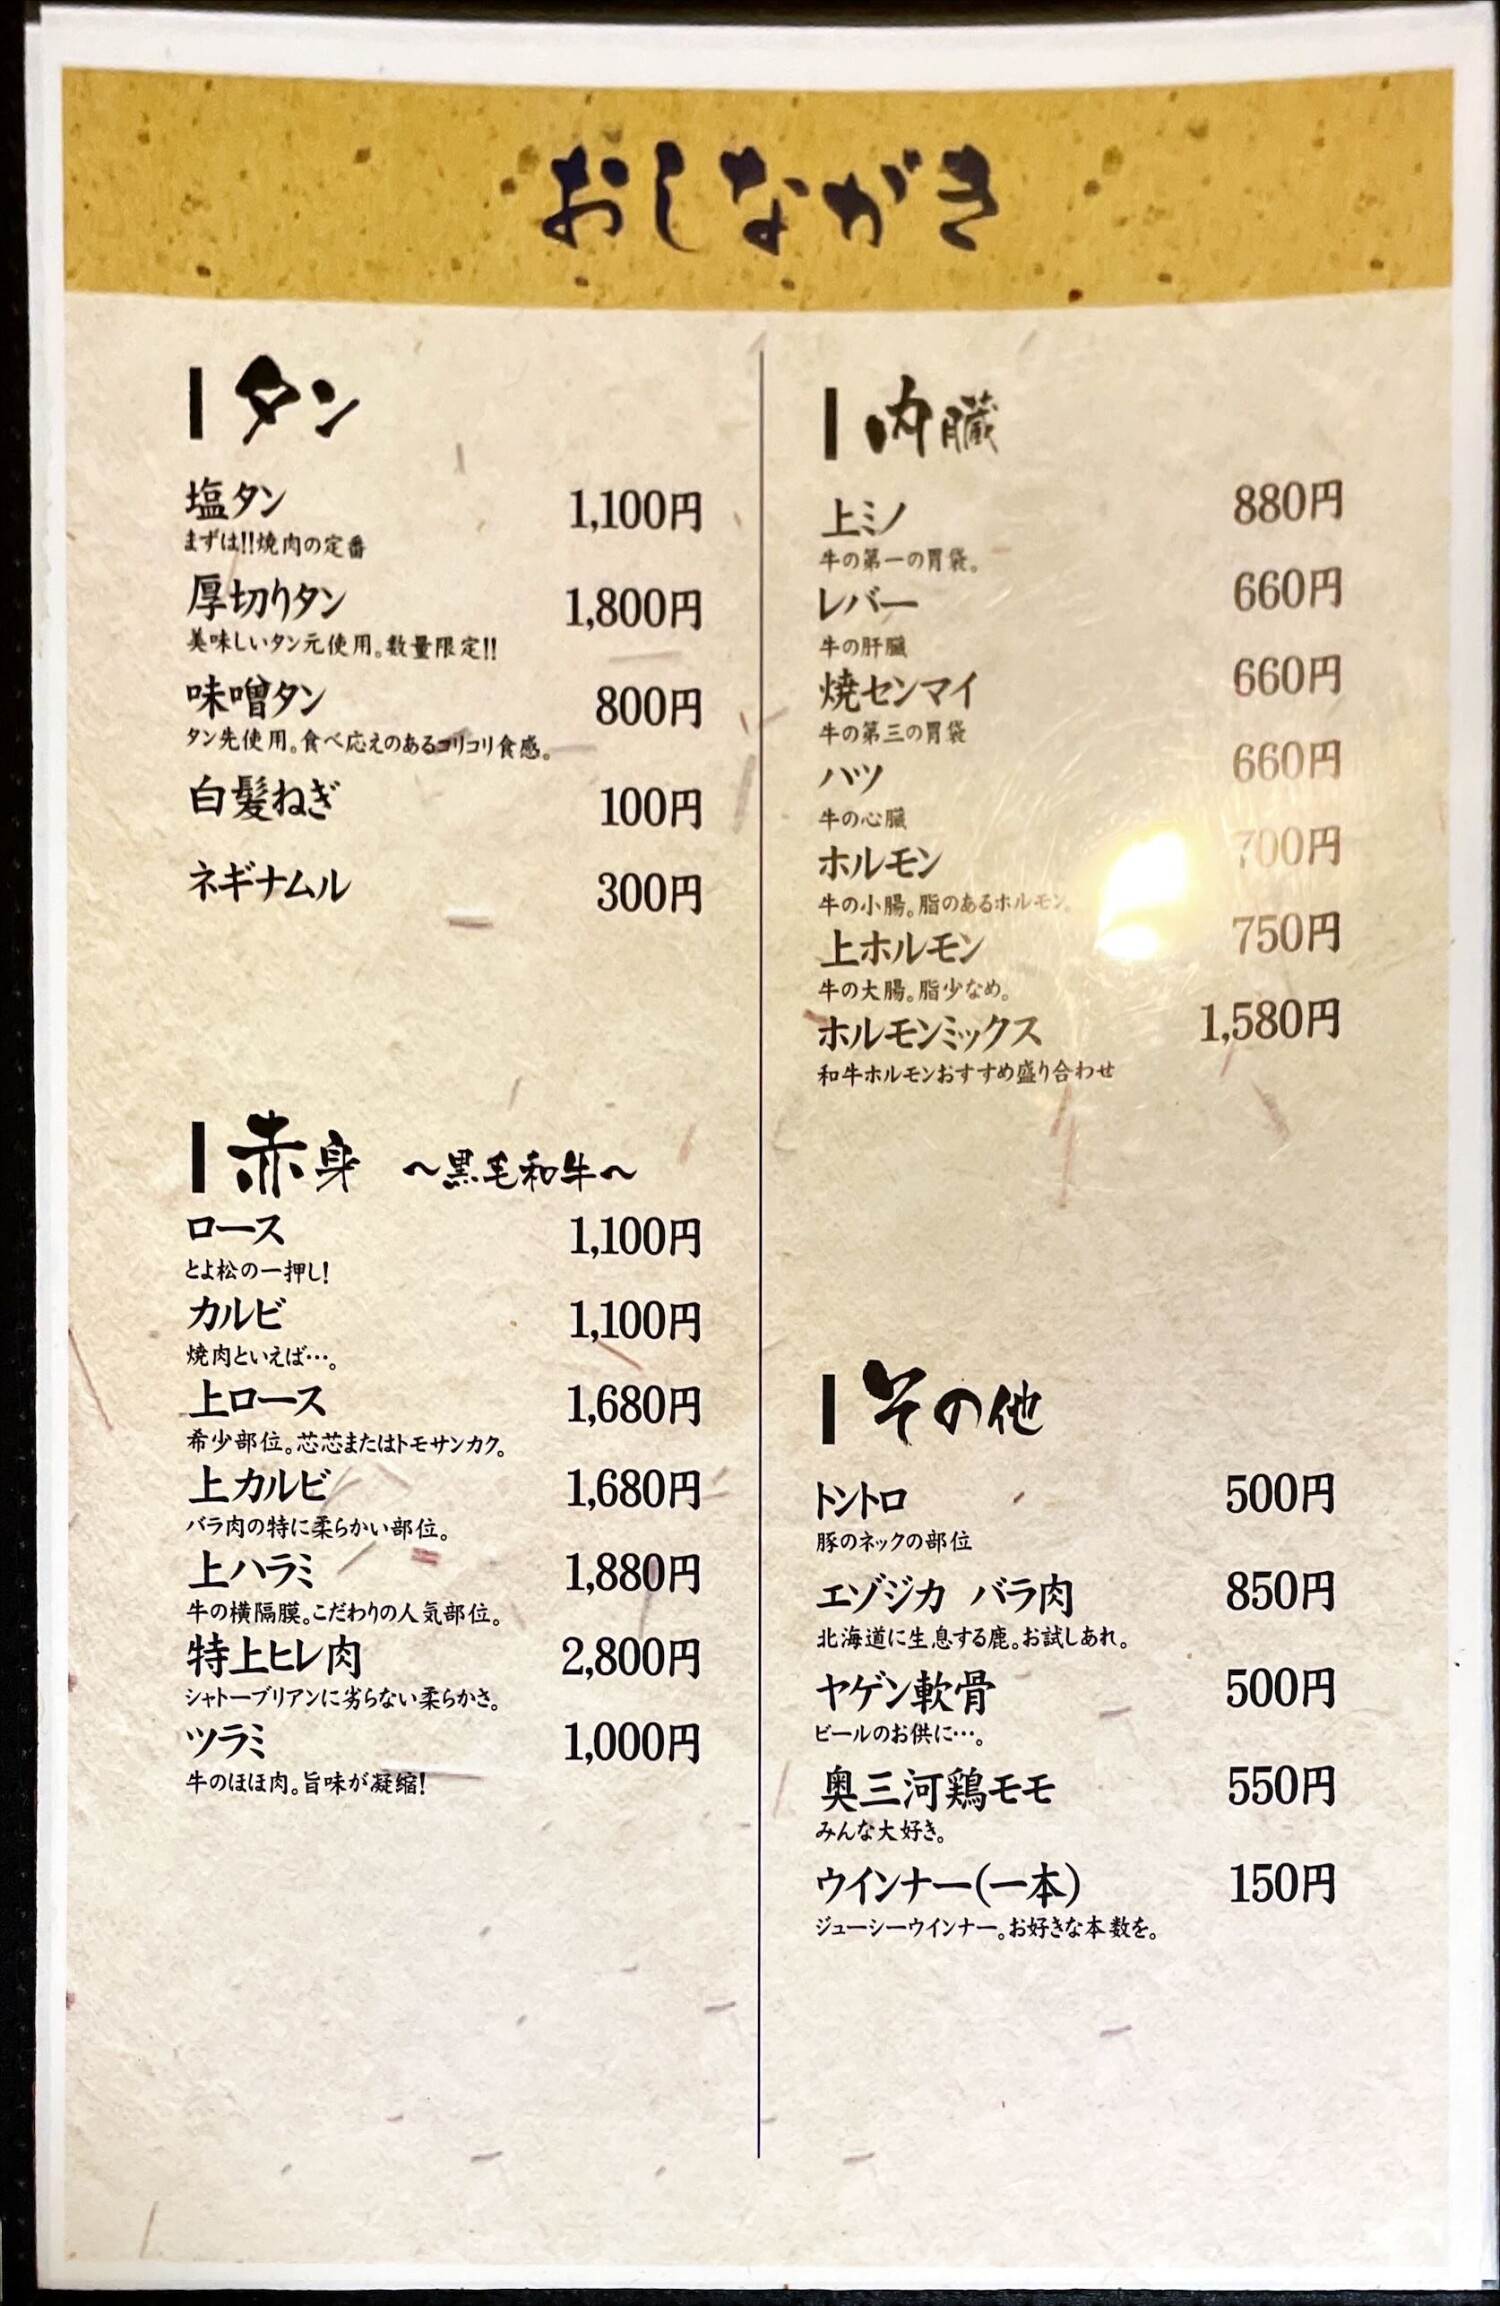 おしながき
タン
塩タン 1,100円
まずは!!焼肉の定番
厚切りタン 1,800円
美味しいタン元使用。数量限定!!
味噌タン 800円
タン先使用。食べ応えのあるコリコリ食感。
白髪ねぎ 100円
ネギナムル 300円
赤身 〜黒毛和牛〜
ロース 1,100円
とよ松の一押し!
カルビ 1,100円
焼肉といえば…。
上ロース 1,680円
希少部位。芯芯またはトモサンカク。
上カルビ 1,680円
バラ肉の特に柔らかい部位。
上ハラミ 1,880円
牛の横隔膜。こだわりの人気部位。
特上ヒレ肉 2,800円
シャトーブリアンに劣らない柔らかさ。
ツラミ 1,000円
牛のほほ肉。旨味が凝縮!
内臓
上ミノ 880円
牛の第一の胃袋。
レバー 660円
牛の肝臓
焼センマイ 660円
牛の第三の胃袋
ハツ 660円
牛の心臓
ホルモン 700円
牛の小腸。脂のあるホルモン。
上ホルモン 750円
牛の大腸。脂少なめ。
ホルモンミックス 1,580円
和牛ホルモンおすすめ盛り合わせ
その他
トントロ 500円
豚のネックの部位
エゾジカ バラ肉 850円
北海道に生息する鹿。お試しあれ。
ヤゲン軟骨 500円
ビールのお供に…。
奥三河鶏モモ 550円
みんな大好き。
ウインナー(一本) 150円
ジューシーウインナー。お好きな本数を。